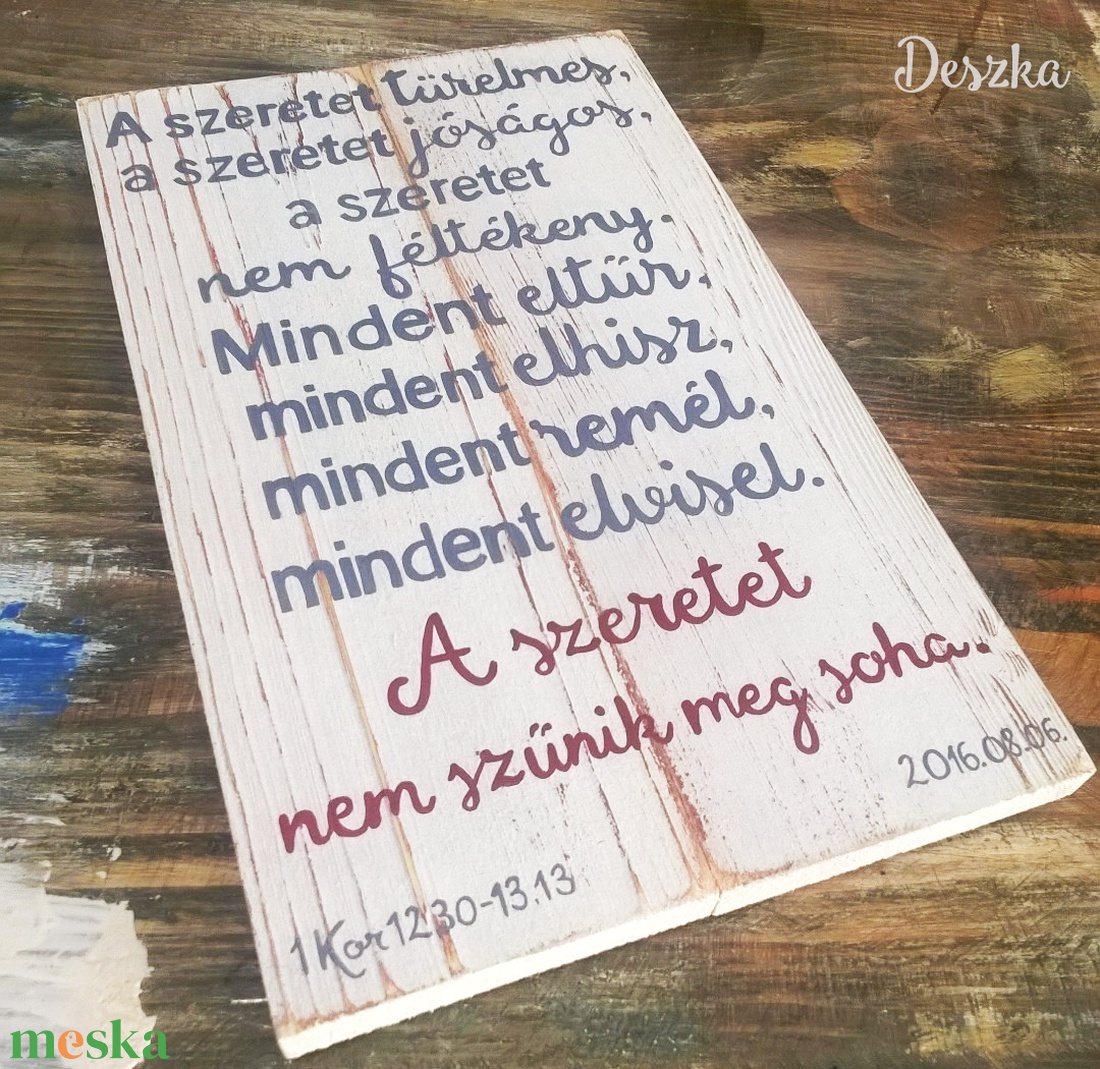 Deszka
A szeretet türelmes,
a szeretet jóságos,
a szeretet
nem féltékeny.
Mindent eltűr,
mindent elhisz,
mindent remél,
mindent elvisel.
A szeretet
nem szűnik meg soha.
2016.08.06.
1 Kor 12.30-13.13
meska